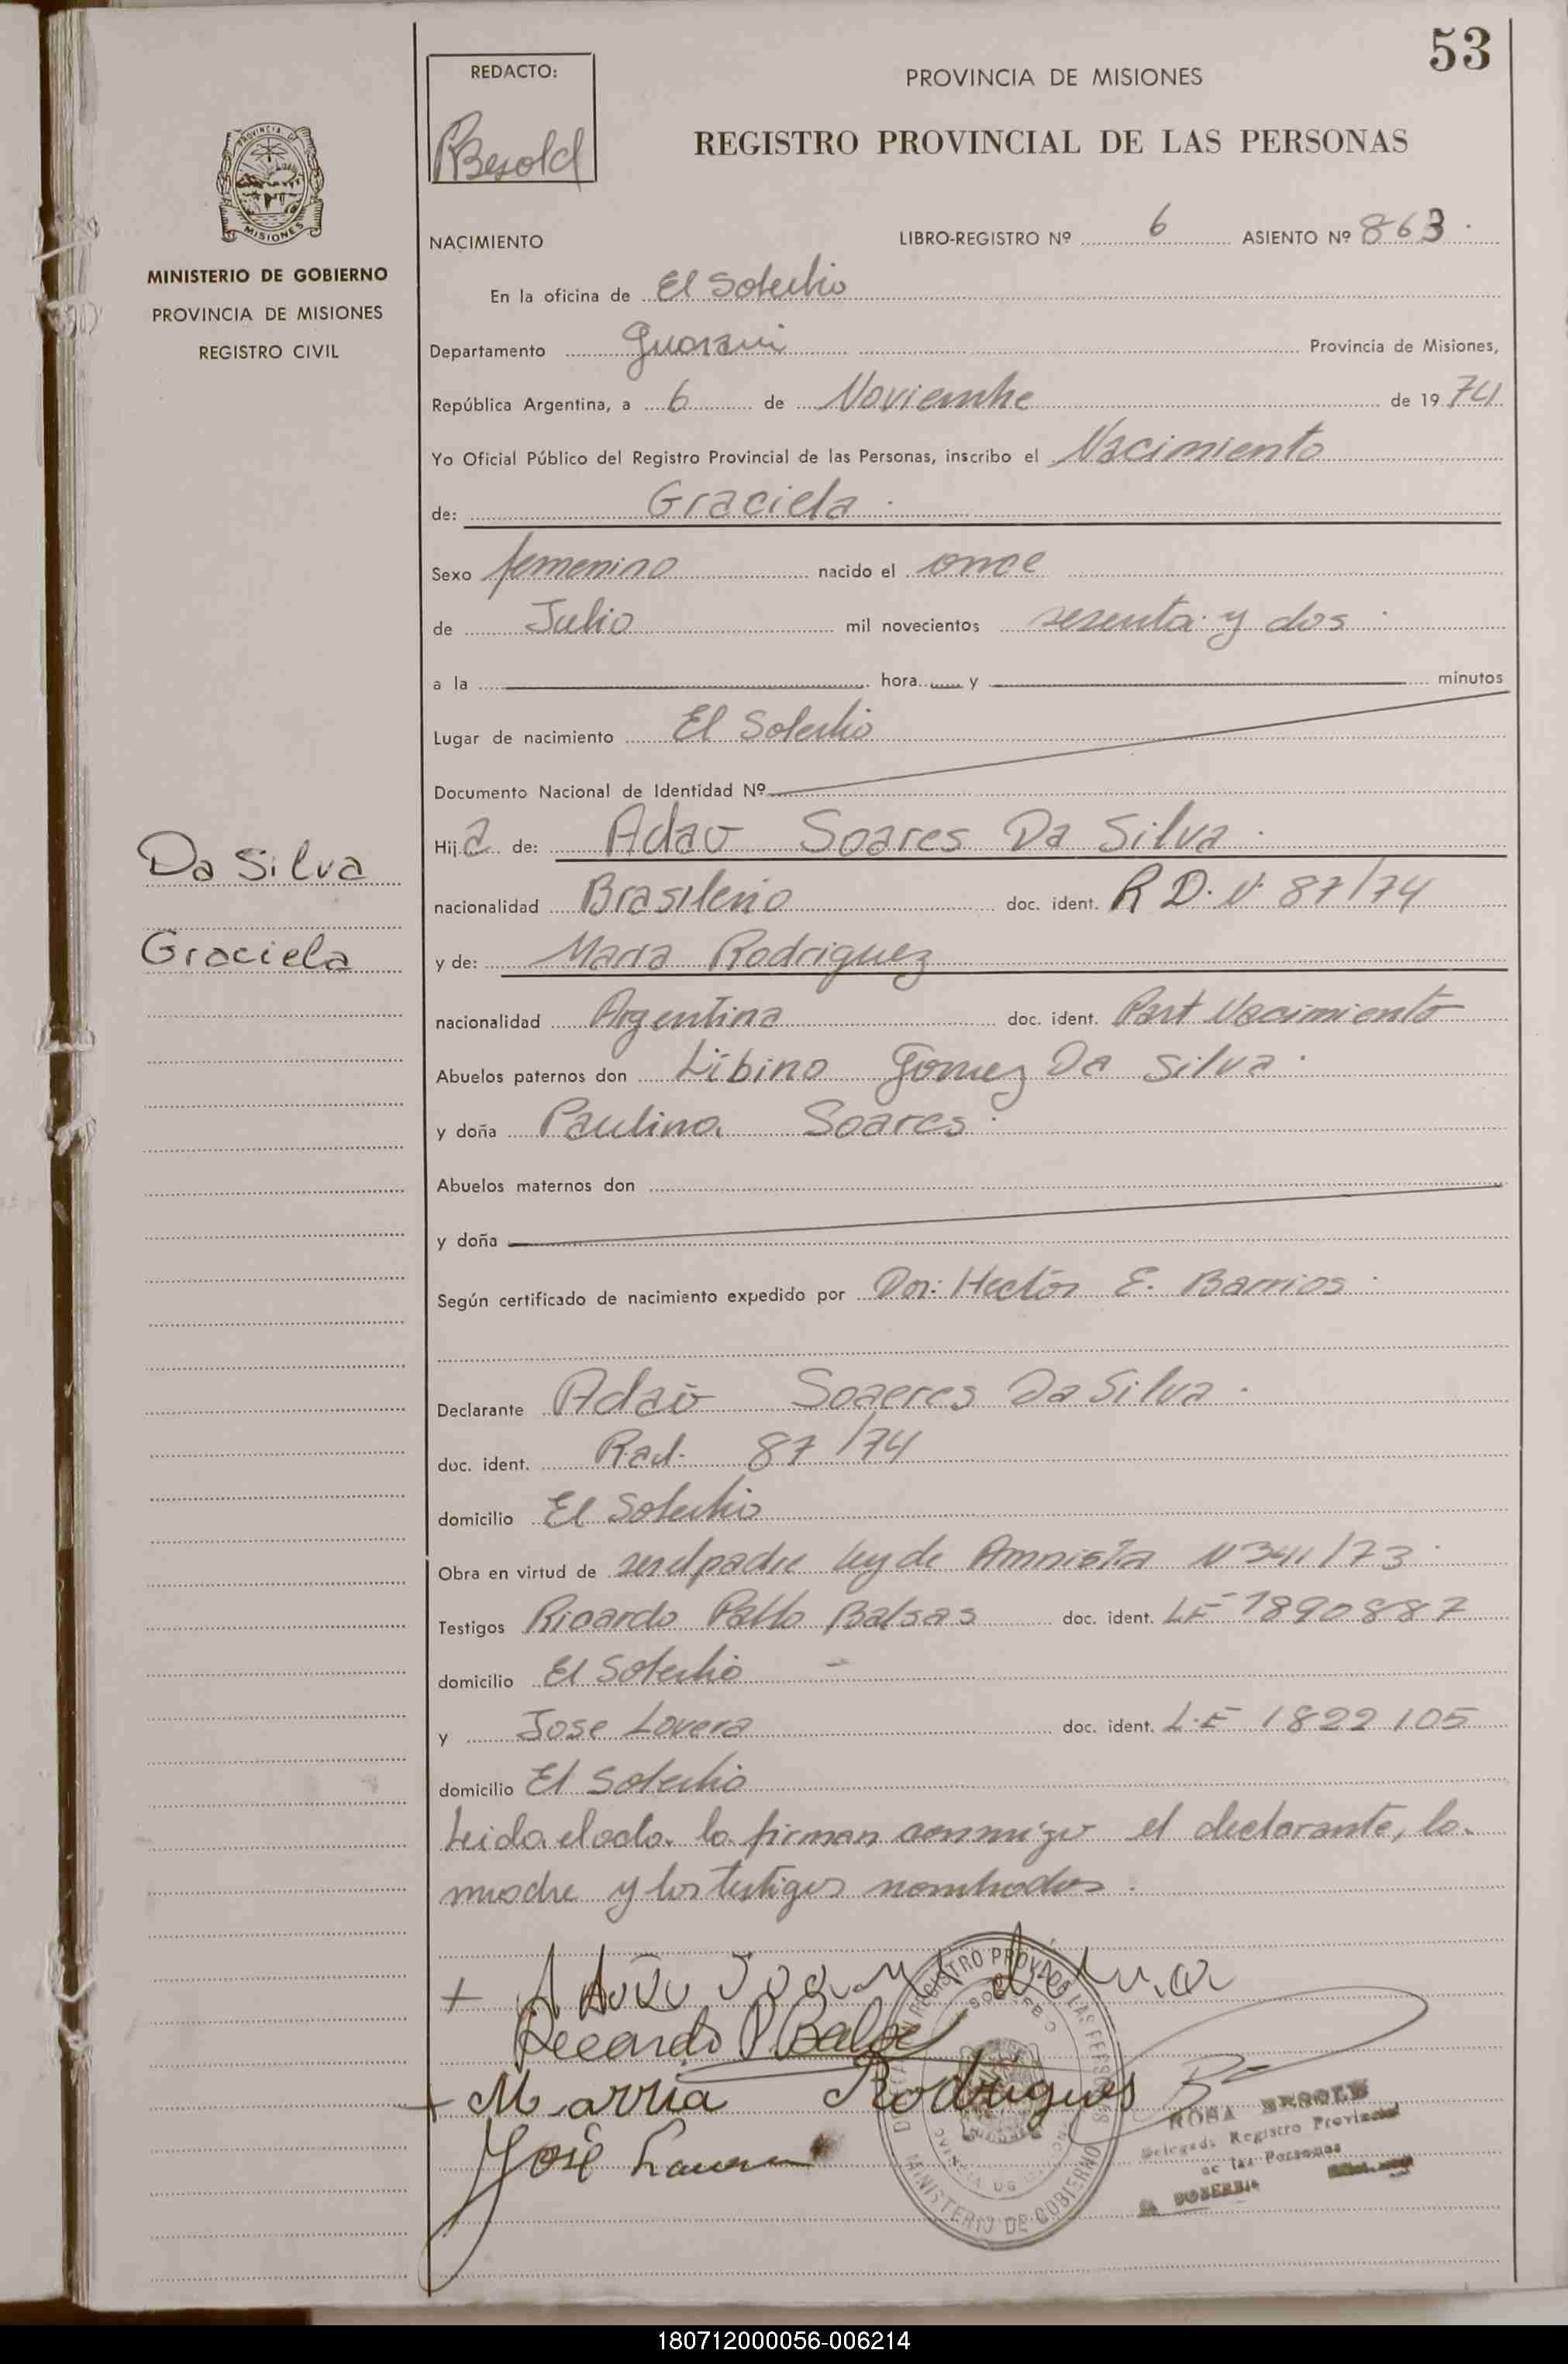 53
REDACTO:
RBesold
PROVINCIA DE MISIONES
REGISTRO PROVINCIAL DE LAS PERSONAS
PROVINCIA DE
MISIONES
MINISTERIO DE GOBIERNO
PROVINCIA DE MISIONES
REGISTRO CIVIL
NACIMIENTO LIBRO-REGISTRO Nº 6 ASIENTO Nº 863
En la oficina de El Soberbio
Departamento Guarani Provincia de Misiones,
República Argentina, a 6 de Noviembre de 1974
Yo Oficial Público del Registro Provincial de las Personas, inscribo el Nacimiento
de: Graciela
Sexo femenino nacido el once
de Julio mil novecientos sesenta y dos
a la hora y minutos
Lugar de nacimiento El Soberbio
Documento Nacional de Identidad Nº
Hija de: Adao Soares Da Silva
Da Silva
nacionalidad Brasileño doc. ident. R D. N. 87/74
Graciela
y de: Maria Rodriguez
nacionalidad Argentina doc. ident. Part Nacimiento
Abuelos paternos don Libino Gomez Da Silva
y doña Paulina Soares
Abuelos maternos don
y doña
Según certificado de nacimiento expedido por Dor: Hector E. Barrios
Declarante Adao Soaeres Da Silva
doc. ident. Rad. 87/74
domicilio El Soberbio
Obra en virtud de ser el padre ley de Amnistia N 341/73
Testigos Ricardo Pablo Balsas doc. ident. LE 7890887
domicilio El Soberbio
y Jose Lovera doc. ident. L.E 1822105
domicilio El Soberbio
Leida el acta la firman conmigo el declarante, la
madre y los testigos nombrados.
+
Ricardo P. Balsa
+ Marria Rodrigues
José
REGISTRO PROV. DE LAS PERSONAS
SOBERBIO
PROVINCIA DE MISIONES
MINISTERIO DE GOBIERNO
ROSA BESOLD
Delegada Registro Provincial
de las Personas
EL SOBERBIO
180712000056-006214